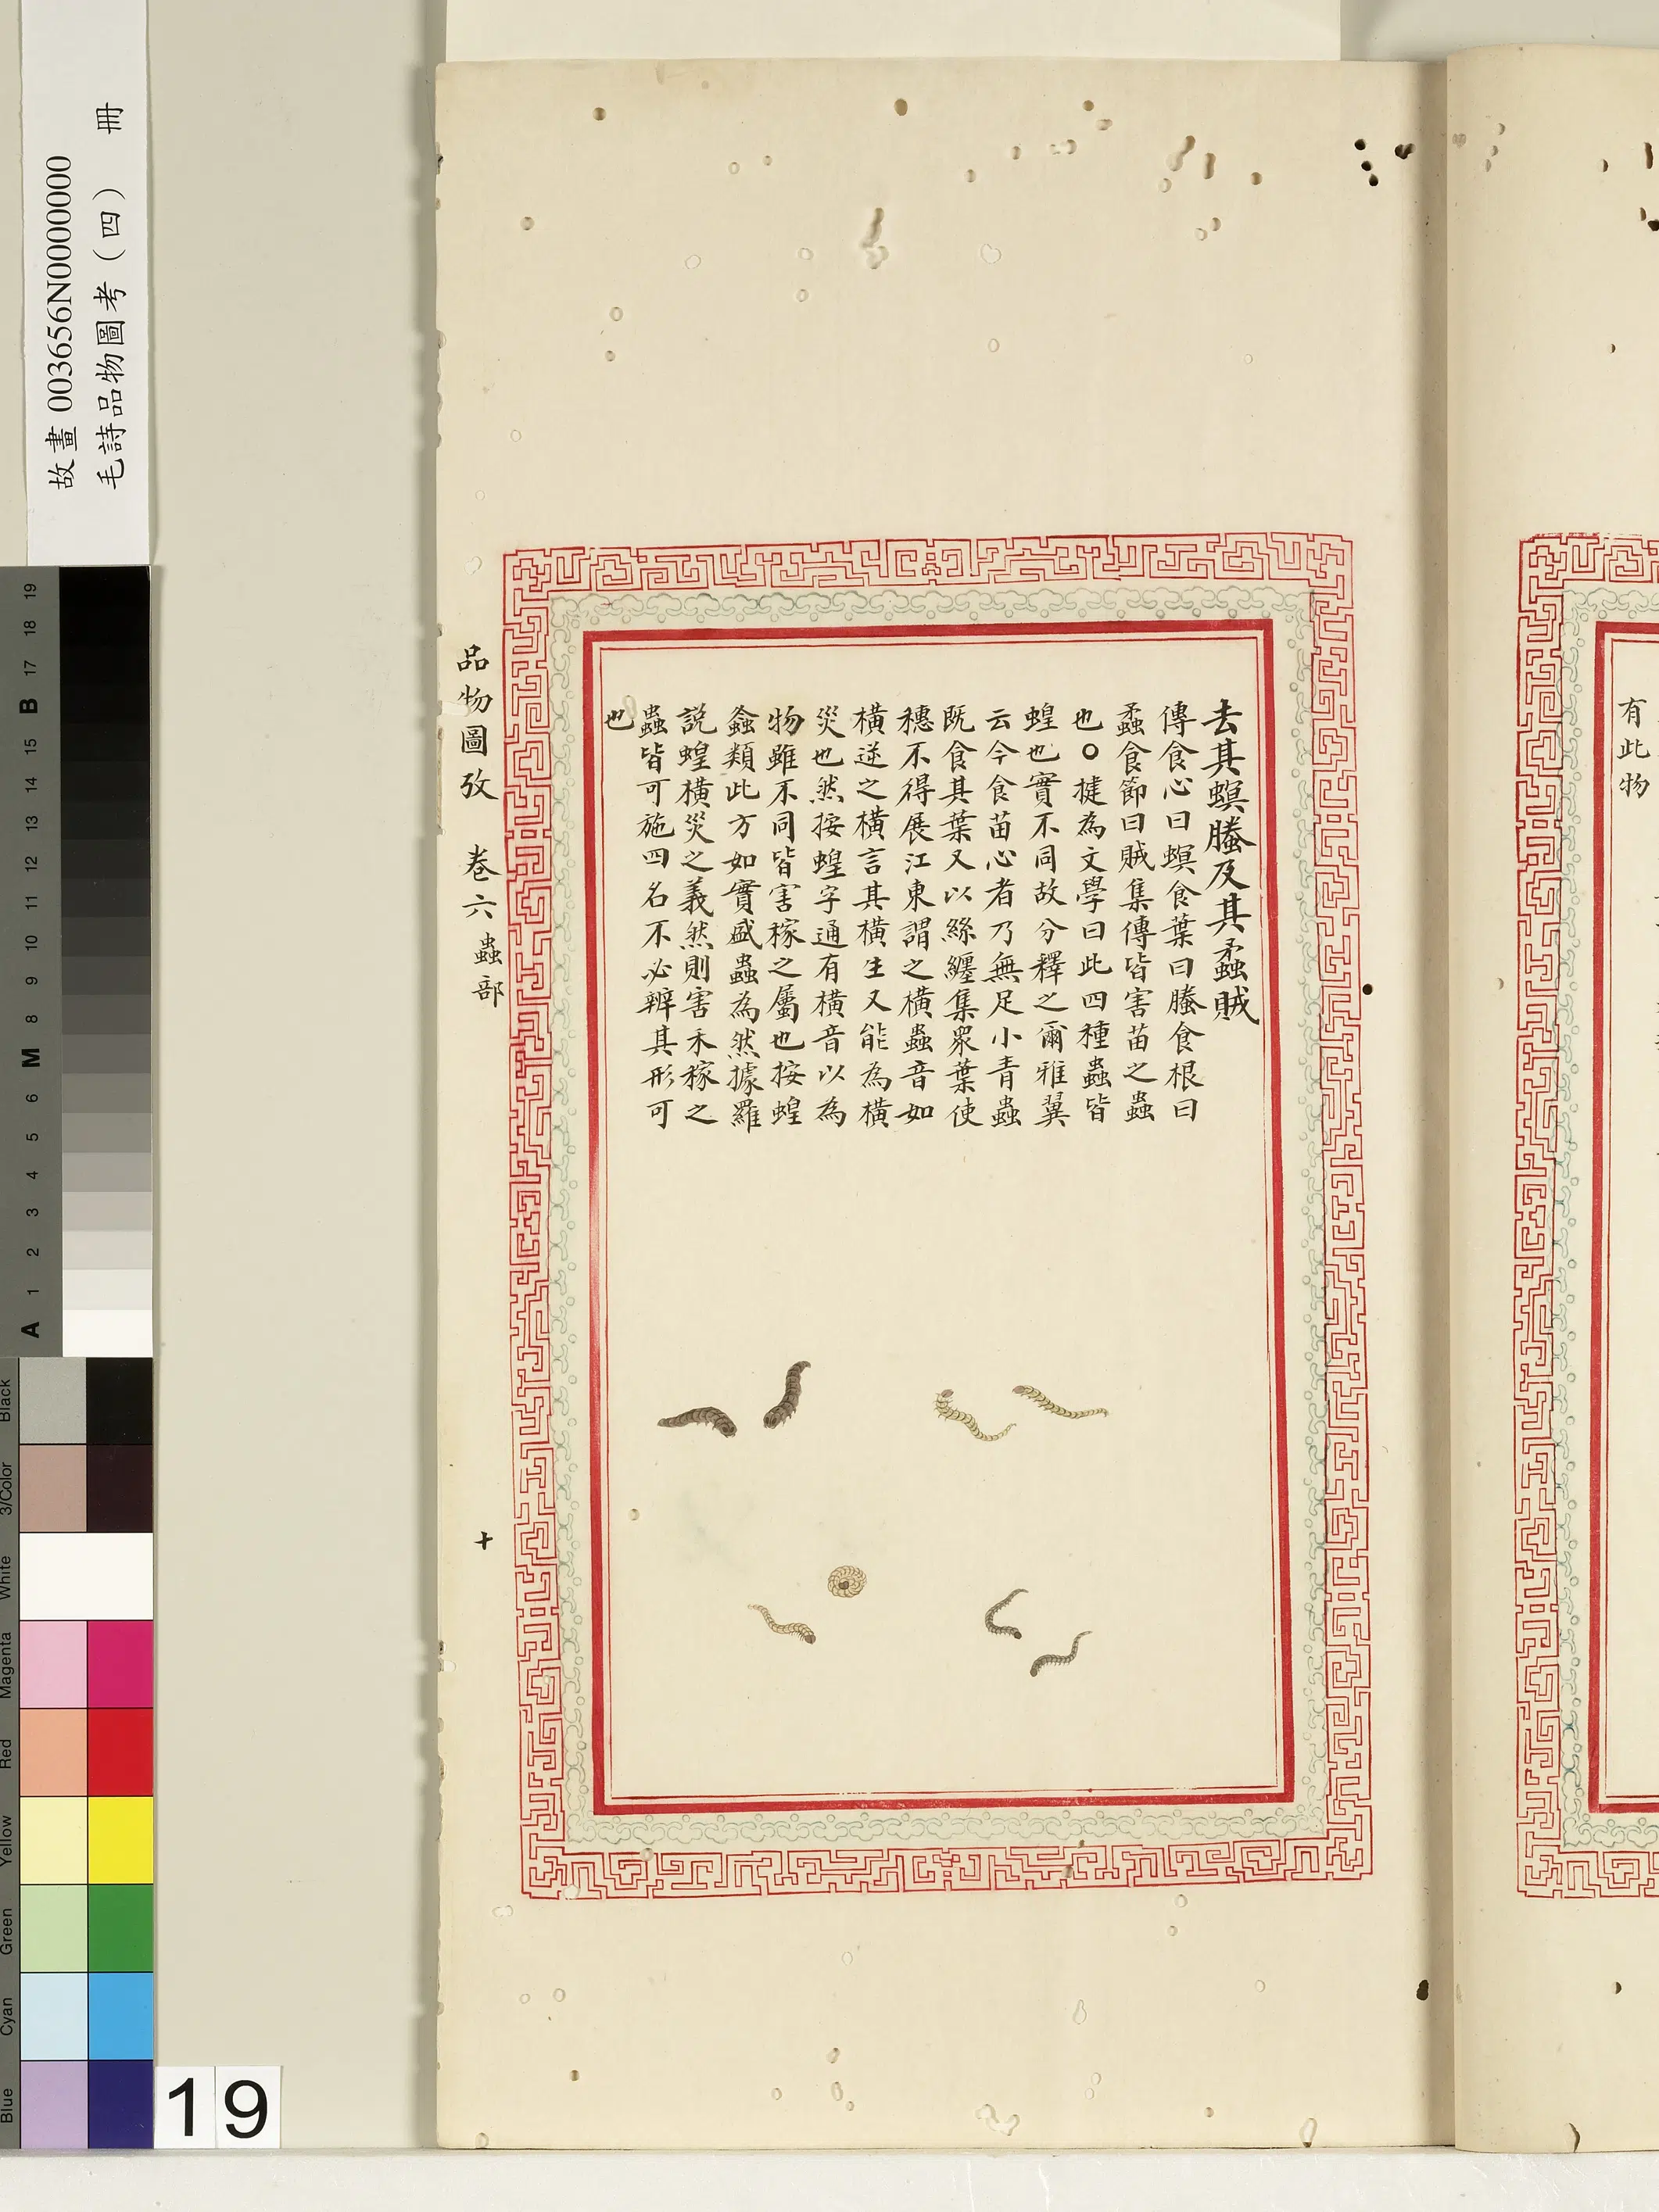 故畫 003656N000000000
毛詩品物圖考（四） 冊
有此物
去其螟螣及其蟊賊
傳食心曰螟食葉曰螣食根曰
蟊食節曰賊集傳皆害苗之蟲
也○揵為文學曰此四種蟲皆
蝗也實不同故分釋之爾雅翼
云今食苗心者乃無足小青蟲
既食其葉又以絲纏集眾葉使
穗不得展江東謂之橫蟲音如
橫逆之橫言其橫生又能為橫
災也然按蝗字通有橫音以為
物雖不同皆害稼之屬也按蝗
螽類此方如實盛蟲為然據羅
説蝗橫災之義然則害禾稼之
蟲皆可施四名不必辨其形可
也
品物圖攷 卷六蟲部
十
19 18 17 B 15 14 13 12 11 10 9 8 M 6 5 4 3 2 1 A
Black
3/Color
White
Magenta
Red
Yellow
Green
Cyan
Blue
19